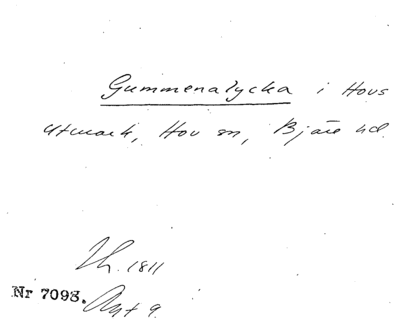 Gummenalycka i Hovs
utmark, Hov sn, Bjäre hd.
Lh. 1811
Nr 7093. Akt 9.